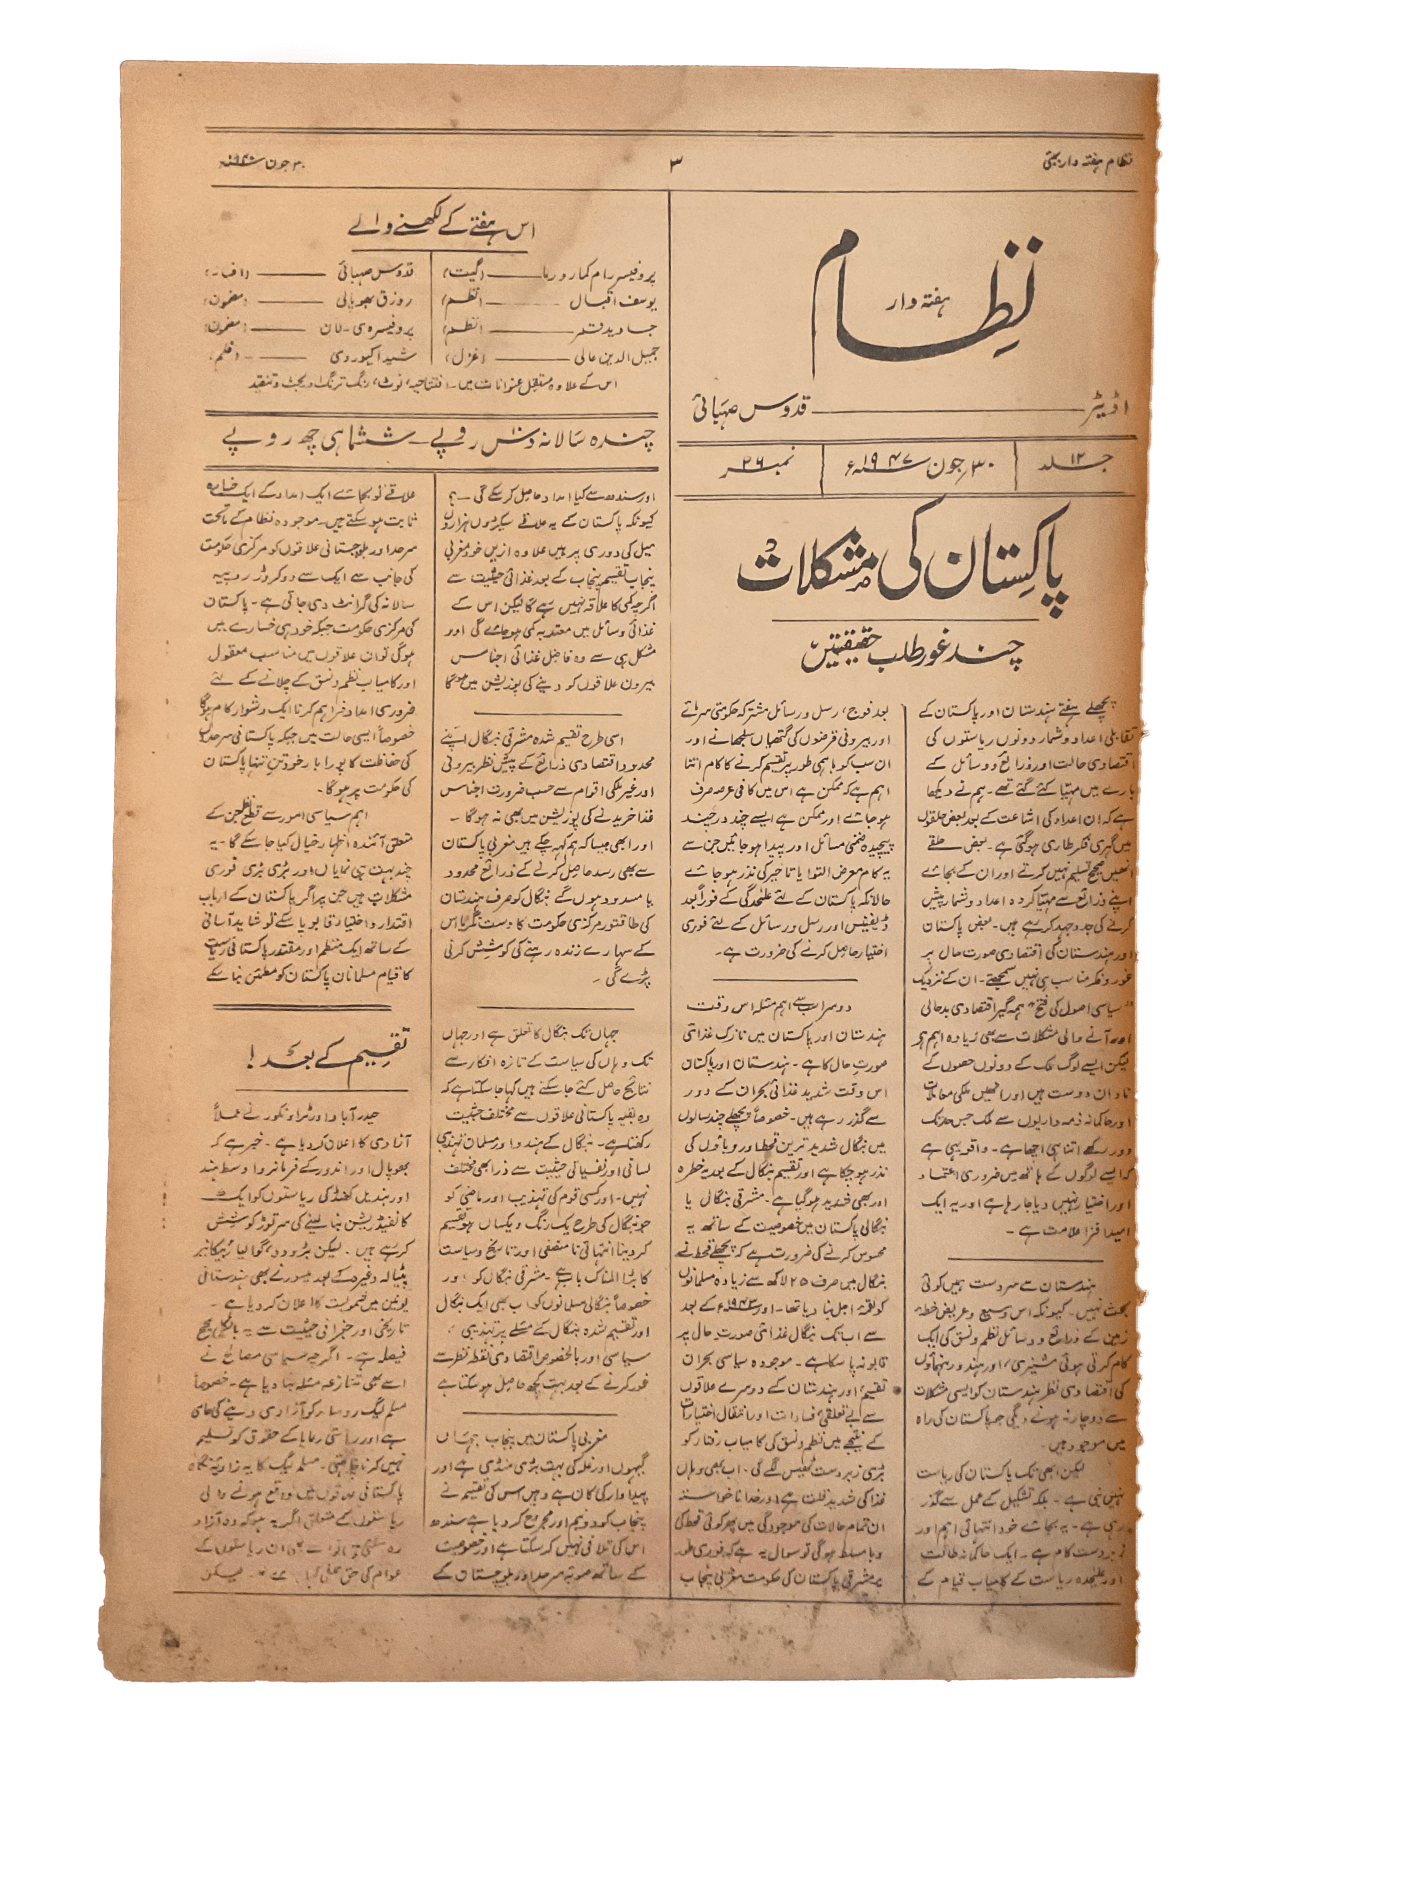 نظام ہفتہ وار بمبئی
۳
۳۰ جون ۱۹۴۷ء
نظام
ہفتہ وار
اڈیٹر ——— قدوس صہبائی
جلد ۱۲
۳۰ جون ۱۹۴۷ء
نمبر ۲۶
پاکستان کی مشکلات
چند غور طلب حقیقتیں
پچھلے ہفتے ہندستان اور پاکستان کے
تقابلی اعداد و شمار دونوں ریاستوں کی
اقتصادی حالت اور ذرائع و وسائل کے
بارے میں مہیّا کئے گئے تھے۔ ہم نے دیکھا
ہے کہ ان اعداد کی اشاعت کے بعد بعض حلقوں
میں گہری فکر طاری ہوگئی ہے۔ بعض حلقے
انھیں صحیح تسلیم نہیں کرتے اور ان کے بجائے
اپنے ذرائع سے مہیّا کردہ اعداد و شمار پیش
کرنے کی جدوجہد کررہے ہیں۔ بعض پاکستان
اور ہندستان کی اقتصادی صورت حال پر
غور و فکر مناسب ہی نہیں سمجھتے۔ ان کے نزدیک
"سیاسی اصول کی فتح" ہمہ گیر اقتصادی بدحالی
اور آنے والی مشکلات سے بھی زیادہ اہم ہے
لیکن ایسے لوگ ملک کے دونوں حصوں کے
نادان دوست ہیں اور انھیں ملکی معاملات
اور حاکمانہ ذمہ داریوں سے ملک جس حد تک
دور رکھے اتنا ہی اچھا ہے۔ واقعہ یہی ہے
کہ ایسے لوگوں کے ہاتھ میں ضروری اعتماد
اور اختیار نہیں دیا جارہا ہے اور یہ ایک
امید افزا علامت ہے۔
ہندستان سے سردست ہمیں کوئی
بحث نہیں۔ کیونکہ اس وسیع و عریض خطۂ
زمین کے ذرائع و وسائل نظم و نسق کی ایک
کام کرتی ہوئی مشینری، اور ہندو رہنماؤں
کی اقتصادی نظر ہندستان کو ایسی مشکلات
سے دوچار نہ ہونے دیگی جو پاکستان کی راہ
میں موجود ہیں۔
لیکن ابھی تک پاکستان کی ریاست
نہیں بنی ہے۔ بلکہ تشکیل کے عمل سے گذر
رہی ہے۔ یہ بجائے خود انتہائی اہم اور
زبردست کام ہے۔ ایک حاکمانہ طاقت
اور علیحدہ ریاست کے کامیاب قیام کے
بعد فوج، رسل و رسائل مشترکہ حکومتی سرمائے
اور بیرونی قرضوں کی گتھیاں سلجھانے اور
ان سب کو باہمی طور پر تقسیم کرنے کا کام اتنا
اہم ہے کہ ممکن ہے اس میں کافی عرصہ صرف
ہوجائے اور ممکن ہے ایسے چند در چند
پیچیدہ ضمنی مسائل اور پیدا ہوجائیں جن سے
یہ کام معرض التوا یا تاخیر کی نذر ہوجائے
حالانکہ پاکستان کے لئے علیحدگی کے فوراً بعد
ڈیفینس اور رسل و رسائل کے لئے فوری
اختیار حاصل کرنے کی ضرورت ہے۔
دوسرا سب سے اہم مسئلہ اس وقت
ہندستان اور پاکستان میں نازک غذائی
صورت حال کا ہے۔ ہندستان اور پاکستان
اس وقت شدید غذائی بحران کے دور
سے گذر رہے ہیں۔ خصوصاً پچھلے چند سالوں
میں بنگال شدید ترین قحط اور وباؤں کی
نذر ہوچکا ہے اور تقسیم بنگال کے بعد یہ خطرہ
اور بھی شدید ہوگیا ہے۔ مشرقی بنگال یا
بنگالی پاکستان میں خصوصیت کے ساتھ یہ
محسوس کرنے کی ضرورت ہے کہ پچھلے قحط نے
بنگال میں صرف ۲۵ لاکھ سے زیادہ مسلمانوں
کو لقمۂ اجل بنا دیا تھا۔ اور ۱۹۴۳ء کے بعد
سے اب تک بنگال غذائی صورت حال پر
قابو نہ پا سکا ہے۔ موجودہ سیاسی بحران
تقسیم، اور ہندستان کے دوسرے علاقوں
سے بے تعلقی، فسادات اور انتقال اختیارات
کے نتیجے میں نظم و نسق کی کامیاب رفتار کو
بڑی زبردست ٹھیس لگے گی۔ اب بھی وہاں
غذا کی شدید قلت ہے اور خدانخواستہ
ان تمام حالات کی موجودگی میں پھر کوئی قحط کی
وبا مسلط ہوگی تو سوال یہ ہے کہ فوری طور
پر مشرقی پاکستان کی حکومت مغربی پنجاب
اس ہفتے کے لکھنے والے
پروفیسر رام کمار ورما ——— (گیت)
یوسف اقبال ——— (نظم)
جاوید قمر ——— (نظم)
جمیل الدین عالی ——— (غزل)
قدوس صہبائی ———
روزق بھوپالی ——— (مضمون)
پروفیسر ہی۔لان ——— (مضمون)
——— (فلم)
اس کے علاوہ مستقل عنوانات میں۔ افتتاحیہ، نوٹ، رنگ ترنگ اور بحث و تنقید
چندہ سالانہ دس روپے — ششماہی چھ روپے
اور سندھ سے کیا امداد حاصل کرسکے گی۔؟
کیونکہ پاکستان کے یہ علاقے سیکڑوں ہزاروں
میل کی دوری پر ہیں علاوہ ازیں خود مغربی
پنجاب تقسیم پنجاب کے بعد غذائی حیثیت سے
اگرچہ کمی کا علاقہ نہیں رہے گا لیکن اس کے
غذائی وسائل میں معتدبہ کمی ہوجائے گی اور
مشکل ہی سے وہ فاضل غذائی اجناس
بیرون علاقوں کو دینے کی پوزیشن میں ہوگا
اسی طرح تقسیم شدہ مشرقی بنگال اپنے
محدود اقتصادی ذرائع کے پیش نظر بیرونی
اور غیر ملکی اقوام سے حسب ضرورت اجناس
غذا خریدنے کی پوزیشن میں بھی نہ ہوگا۔
اور ابھی جیسا کہ ہم کہہ چکے ہیں مغربی پاکستان
سے بھی رسد حاصل کرنے کے ذرائع محدود
یا مسدود ہوں گے بنگال کو صرف ہندستان
کی طاقتور مرکزی حکومت کا دست نگر یا اس
کے سہارے زندہ رہنے کی کوشش کرنی
پڑے گی۔
جہاں تک بنگال کا تعلق ہے اور جہاں
تک وہاں کی سیاست کے تازہ افکار سے
نتائج حاصل کئے جاسکتے ہیں کہا جاسکتا ہے کہ
وہ بقیہ پاکستانی علاقوں سے مختلف حیثیت
رکھتا ہے۔ بنگال کے ہندو اور مسلمان تہذیبی
لسانی اور نفسیاتی حیثیت سے ذرا بھی مختلف
نہیں۔ اور کسی قوم کی تہذیب اور ماضی کو
جو بنگال کی طرح یک رنگ و یکساں ہو تقسیم
کردینا انتہائی نامنصفی اور تاریخ و سیاست
کا بڑا المناک باب ہے۔ مشرقی بنگال کو اور
خصوصاً بنگالی مسلمانوں کو اب بھی ایک بنگال
اور تقسیم شدہ بنگال کے مسئلے پر تہذیبی
سیاسی اور بالخصوص اقتصادی نقطہ نظر سے
غور کرنے کے بعد بہت کچھ حاصل ہوسکتا ہے
مغربی پاکستان میں پنجاب جہاں
گیہوں اور غلہ کی بہت بڑی منڈی ہے اور
پیداوار کی کان ہے وہیں اس کی تقسیم نے
پنجاب کو دو نیم اور مجروح کردیا ہے سندھ
اس کی تلافی نہیں کرسکتا ہے اور خصوصیت
کے ساتھ صوبہ سرحد اور بلوچستان کے
علاقے تو بجائے ایک امداد کے ایک خسارہ
ثابت ہوسکتے ہیں۔ موجودہ نظام کے ماتحت
سرحد اور بلوچستانی علاقوں کو مرکزی حکومت
کی جانب سے ایک سے دو کروڑ روپیہ
سالانہ کی گرانٹ دی جاتی ہے۔ پاکستان
کی مرکزی حکومت جبکہ خود ہی خسارے میں
ہوگی تو ان علاقوں میں مناسب معقول
اور کامیاب نظم و نسق کے چلانے کے لئے
ضروری امداد فراہم کرنا ایک دشوار کام ہوگا
خصوصاً ایسی حالت میں جبکہ پاکستانی سرحدوں
کی حفاظت کا پورا بار خود تن تنہا پاکستان
کی حکومت پر ہوگا۔
اہم سیاسی امور سے قطع نظر جن کے
متعلق آئندہ اظہار خیال کیا جاسکے گا۔ یہ
چند بہت ہی نمایاں اور بڑی بڑی فوری
مشکلات ہیں جن پر اگر پاکستان کے ارباب
اقتدار و اختیار قابو پا سکے تو شاید آسانی
کے ساتھ ایک منظم اور مقتدر پاکستانی ریاست
کا قیام مسلمانان پاکستان کو مطمئن بنا سکے
تقسیم کے بعد!
حیدرآباد اور ٹراونکور نے عملاً
آزادی کا اعلان کردیا ہے۔ خبر ہے کہ
بھوپال اور اندور کے فرمانروا وسط ہند
اور بندیل کھنڈ کی ریاستوں کو ایک
کانفیڈریشن بنا لینے کی سر توڑ کوشش
کررہے ہیں۔ لیکن بڑودہ، گوالیار، بیکانیر
پٹیالہ وغیرہ کے بعد میسور نے بھی ہندستانی
یونین میں شمولیت کا اعلان کردیا ہے۔
تاریخی اور جغرافی حیثیت سے یہ بالکل صحیح
فیصلہ ہے۔ اگرچہ سیاسی مصالح نے
اسے بھی متنازعہ مسئلہ بنا دیا ہے۔ خصوصاً
مسلم لیگ روساء کو آزادی دینے کی حامی
ہے اور ریاستی رعایا کے حقوق کو تسلیم
نہیں کرنا چاہتی۔ مسلم لیگ کا یہ زاویہ نگاہ
پاکستانی علاقوں میں واقع ہونے والی
ریاستوں کے متعلق اگر یہ ہو کہ وہ آزاد
رہ سکتی ہیں
عوام کی حق تلفی